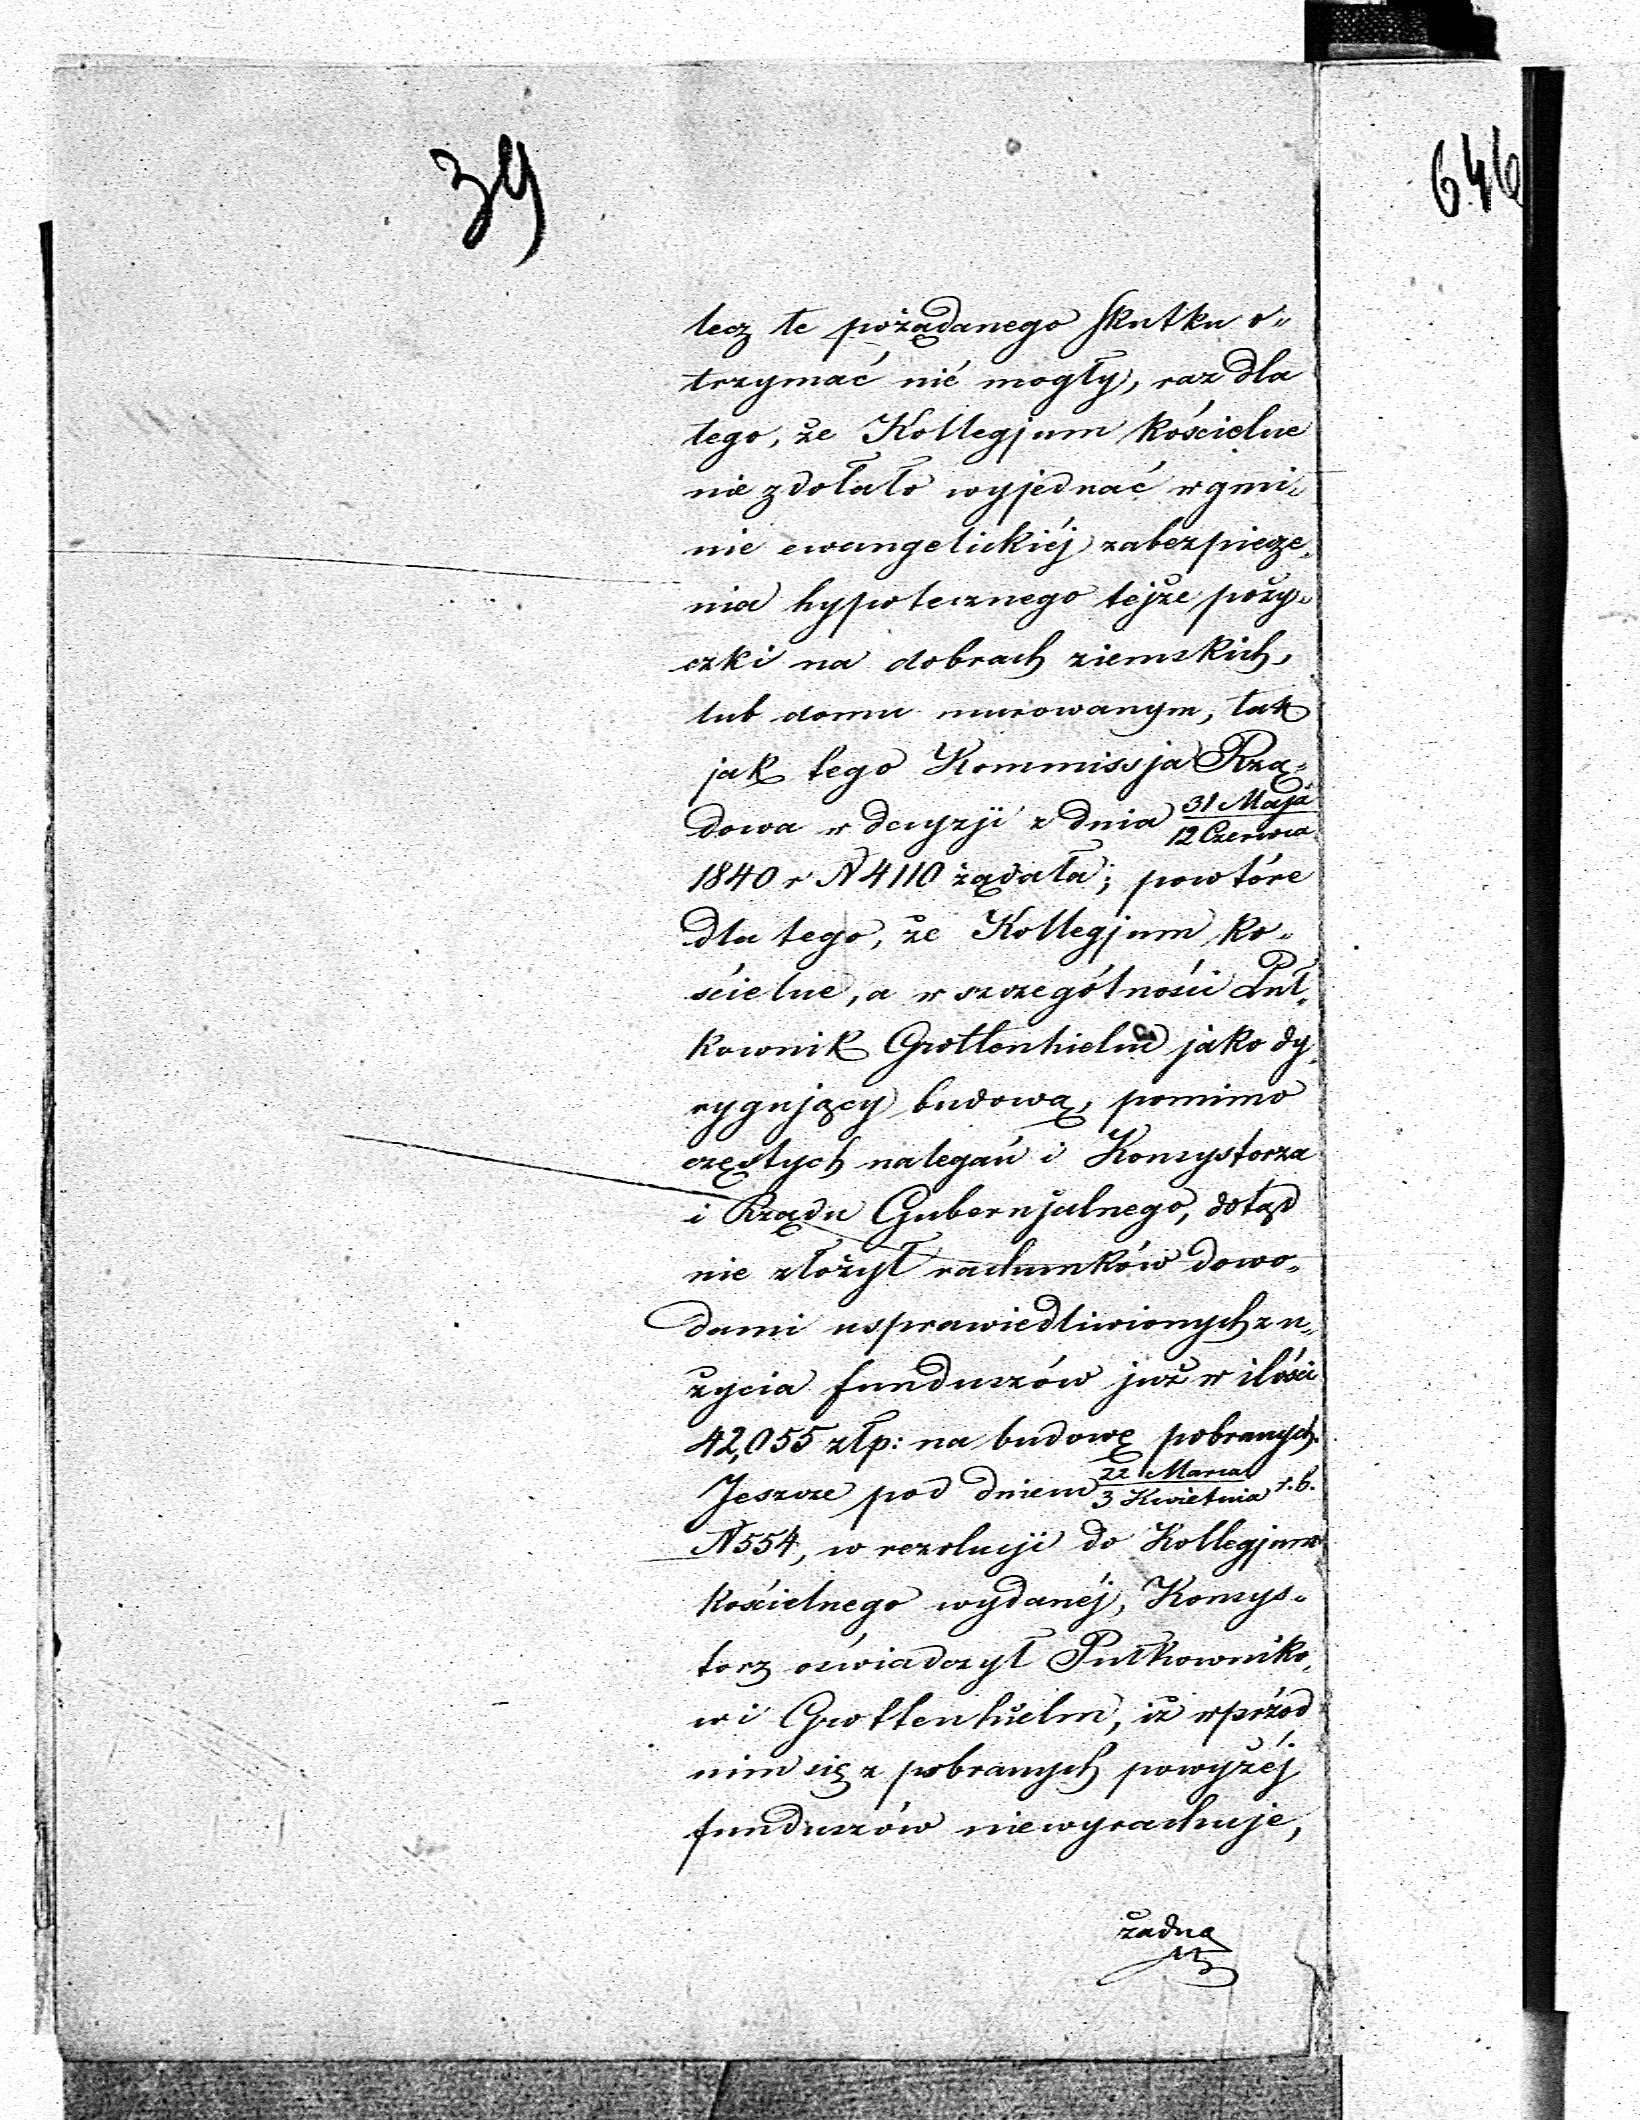 39
646
lecz te pożądanego skutku o„
trzymać nié mogły, raz dla
tego, że Kollegjum kościelne
nie zdołało wyjednać w gmi„
nie ewangelickiéj zabezpiecze„
nia hypotecznego téjże poży„
czki na dobrach ziemskich,
lub domu murowanym, tak
jak tego Kommissja Rzą„
dowa w decyzji z dnia 31 Maja / 12 Czerwca
1840 r N 4110 żądała; powtóre
dla tego, że Kollegjum ko„
ścielne, a w szczególności Puł„
kownik Grottenhielm jako dy„
rygujący budową, pomimo
częstych nalegań i Konsystorza
i Rządu Gubernjalnego, dotąd
nie złożył rachunków dowo„
dami usprawiedliwionych z u„
życia funduszów już w ilości
42,055 złp: na budowę pobranych.
Jeszcze pod dniem 22 Marca / 3 Kwietnia r. b.
N 554, w rezolucji do Kollegjum
kościelnego wydanéj, Konsys„
torz oświadczył Pułkowniko„
wi Grottenhielm, iż wprzód
nim się z pobranych powyżéj
funduszów niewyrachuje,
żadna